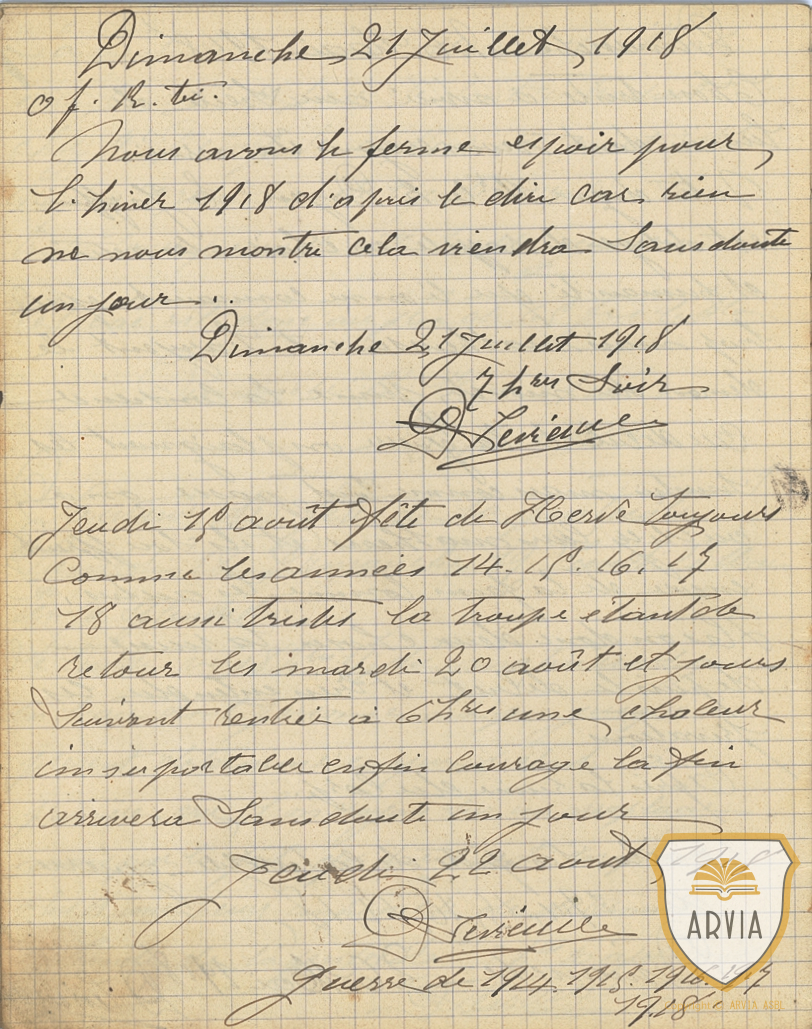 Dimanche 21 Juillet 1918
Nous avons le ferme espoir pour
l'hiver 1918 d'après le dire car rien
ne nous montre cela viendra Sans doute
un jour...
Dimanche 21 Juillet 1918
7 hres Soir
Jeudi 15 août fête de Herve toujours
Comme les années 14. 15. 16. 17
18 aussi tristes la troupe etant de
retour les mardi 20 août et jours
Suivant rentrée à 6 hres une chaleur
insuportable enfin Courage la fin
arrivera Sans doute un jour
Jeudi 22 août 1918
Guerre de 1914. 1915. 1916. 1917
1918
ARVIA
ARVIA ASBL